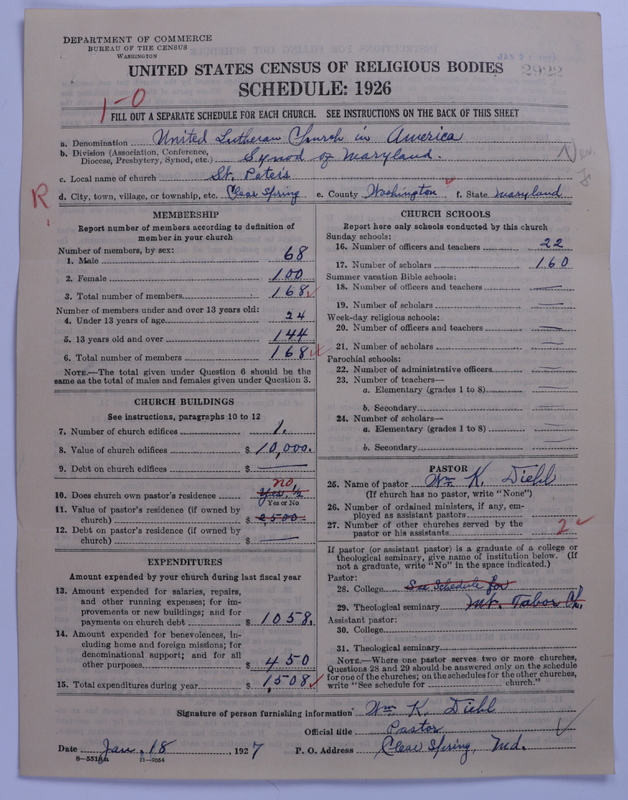 DEPARTMENT OF COMMERCE
BUREAU OF THE CENSUS
WASHINGTON
UNITED STATES CENSUS OF RELIGIOUS BODIES
2922
SCHEDULE: 1926
1-0
FILL OUT A SEPARATE SCHEDULE FOR EACH CHURCH. SEE INSTRUCTIONS ON THE BACK OF THIS SHEET
a. Denomination United Lutheran Church in America
b. Division (Association, Conference, Diocese, Presbytery, Synod, etc.) Synod of Maryland.
c. Local name of church St. Peters
R
d. City, town, village, or township, etc. Clear Spring e. County Washington f. State Maryland
MEMBERSHIP
Report number of members according to definition of
member in your church
Number of members, by sex:
1. Male 68
2. Female 100
3. Total number of members 168
Number of members under and over 13 years old:
4. Under 13 years of age 24
5. 13 years old and over 144
6. Total number of members 168
NOTE.—The total given under Question 6 should be
same as the total of males and females given under Question 3.
CHURCH BUILDINGS
See instructions, paragraphs 10 to 12
7. Number of church edifices 1.
8. Value of church edifices $ 10,000.
9. Debt on church edifices $
no
10. Does church own pastor's residence Yes. ½
Yes or No
11. Value of pastor's residence (if owned by
church) $ 2500.
12. Debt on pastor's residence (if owned by
church) $
EXPENDITURES
Amount expended by your church during last fiscal year
13. Amount expended for salaries, repairs,
and other running expenses; for im-
provements or new buildings; and for
payments on church debt $ 1058.
14. Amount expended for benevolences, in-
cluding home and foreign missions; for
denominational support; and for all
other purposes $ 450
15. Total expenditures during year $ 1508.
CHURCH SCHOOLS
Report here only schools conducted by this church
Sunday schools:
16. Number of officers and teachers 22
17. Number of scholars 160
Summer vacation Bible schools:
18. Number of officers and teachers
19. Number of scholars
Week-day religious schools:
20. Number of officers and teachers
21. Number of scholars
Parochial schools:
22. Number of administrative officers
23. Number of teachers—
a. Elementary (grades 1 to 8)
b. Secondary
24. Number of scholars—
a. Elementary (grades 1 to 8)
b. Secondary
PASTOR
25. Name of pastor Wm K. Diehl
(If church has no pastor, write "None")
26. Number of ordained ministers, if any, em-
ployed as assistant pastors
27. Number of other churches served by the
pastor or his assistants 2
If pastor (or assistant pastor) is a graduate of a college or
theological seminary, give name of institution below. (If
not a graduate, write "No" in the space indicated.)
Pastor:
28. College See Schedule for
29. Theological seminary Mt. Tabor Ch.
Assistant pastor:
30. College
31. Theological seminary
NOTE.—Where one pastor serves two or more churches,
Questions 28 and 29 should be answered only on the schedule
for one of the churches; on the schedules for the other churches,
write "See schedule for church."
Signature of person furnishing information Wm K. Diehl
Official title Pastor
Date Jan. 18, 1927 P. O. Address Clear Spring, Md.